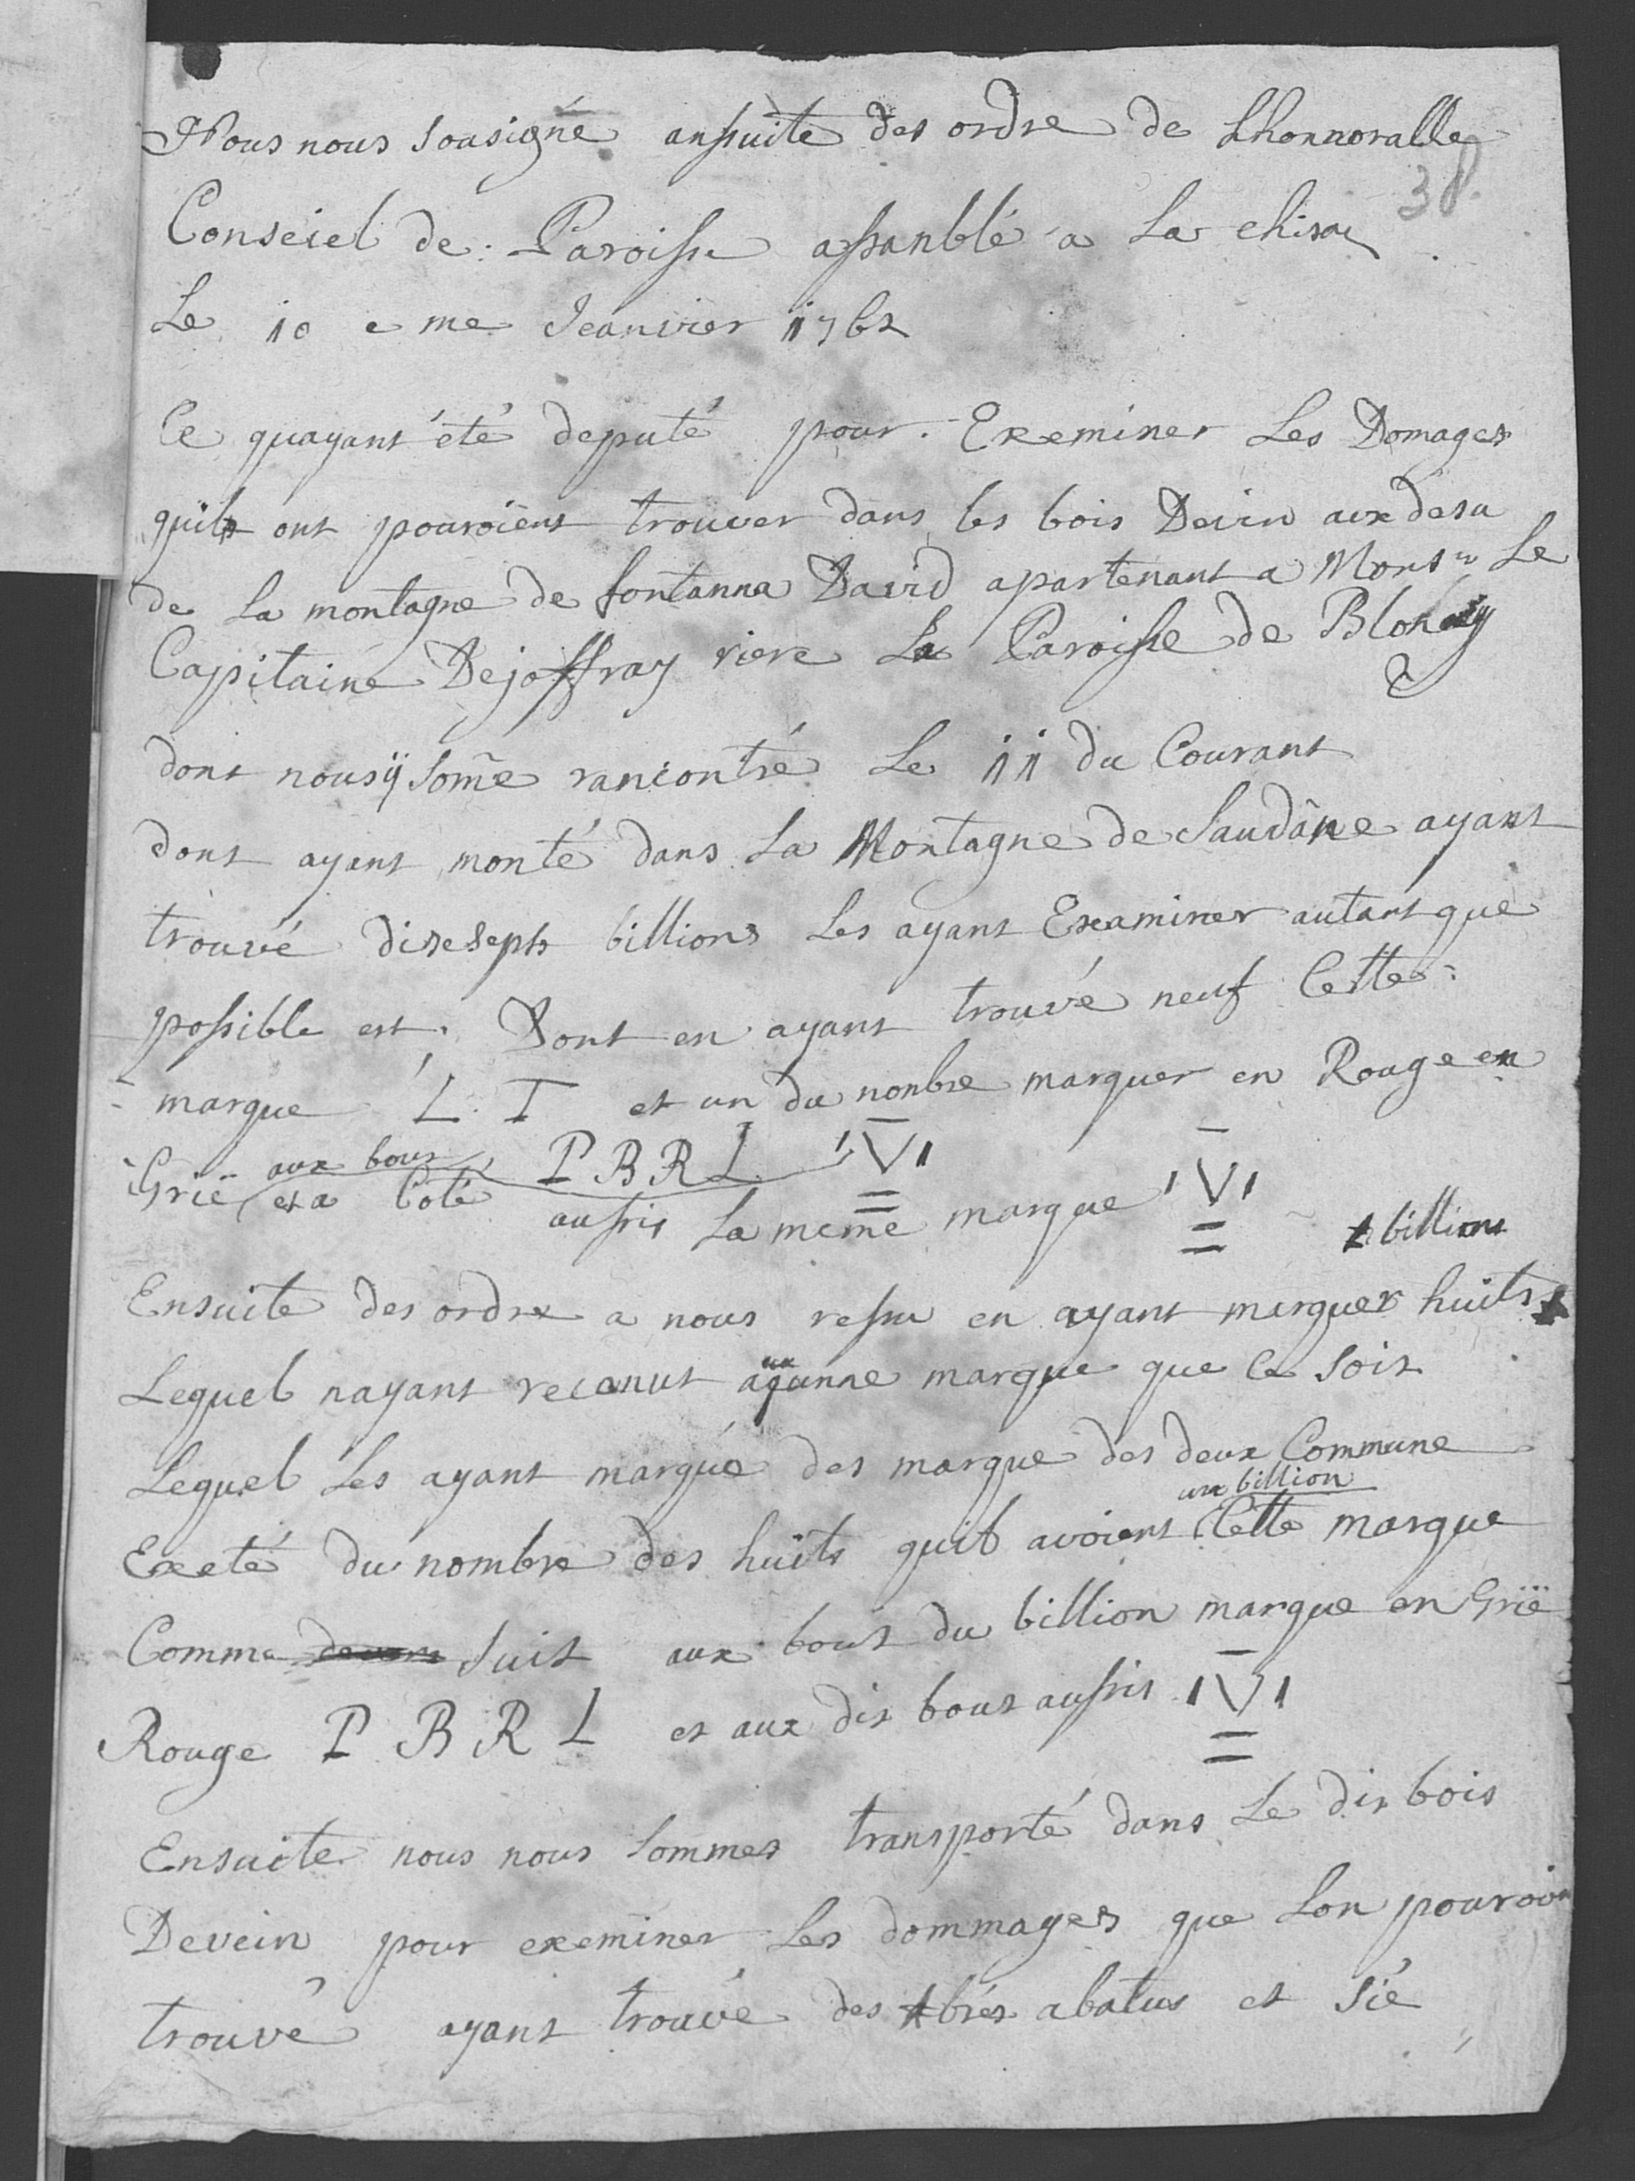 Nous nous sousigné ansuite des ordre de Lhonnoralle
38.
Conseiel de Paroisse assanblé a La chisaz
Le 10 eme Jeanvier 1762
Ce quayant été deputé pour Exeminer Les Domages
quils ont pouroient trouver dans les bois Devin aux desu
de La montagne de fontanna David apartenant a Monsr Le
Capitaine Dejoffray riere La Paroisse de Blonay
dont nous ÿ some rancontré Le 11 du Courant
dont ayant monté dans La Montagne de Saudâne ayant
trouvé diseseph billions Les ayant Examiner autant que
possible est. Dont en ayant trouvé neuf Cette
marque L. T et un du nonbre marquer en Rouge en
Grië aux bous P B R L IVI
et a Coté aussis La meme marque IVI
billions
Ensuite des ordre a nous ressu en ayant marquer huits
Lequel nayant reconut aqunne marque que Ce soit
ux
Lequel Les ayant marqué des marque des deux Commune
Exeté du nombre des huits quil avoient Cette marque
un billion
Comme suit aux bout du billion marque en Grië
Rouge P B R L et aux dit bout aussis IVI
Ensuite nous nous sommes transporté dans Le dit bois
Devein pour exeminer Les dommages que Lon pouroit
trouvé ayant trouvé des Abres abatus et sié